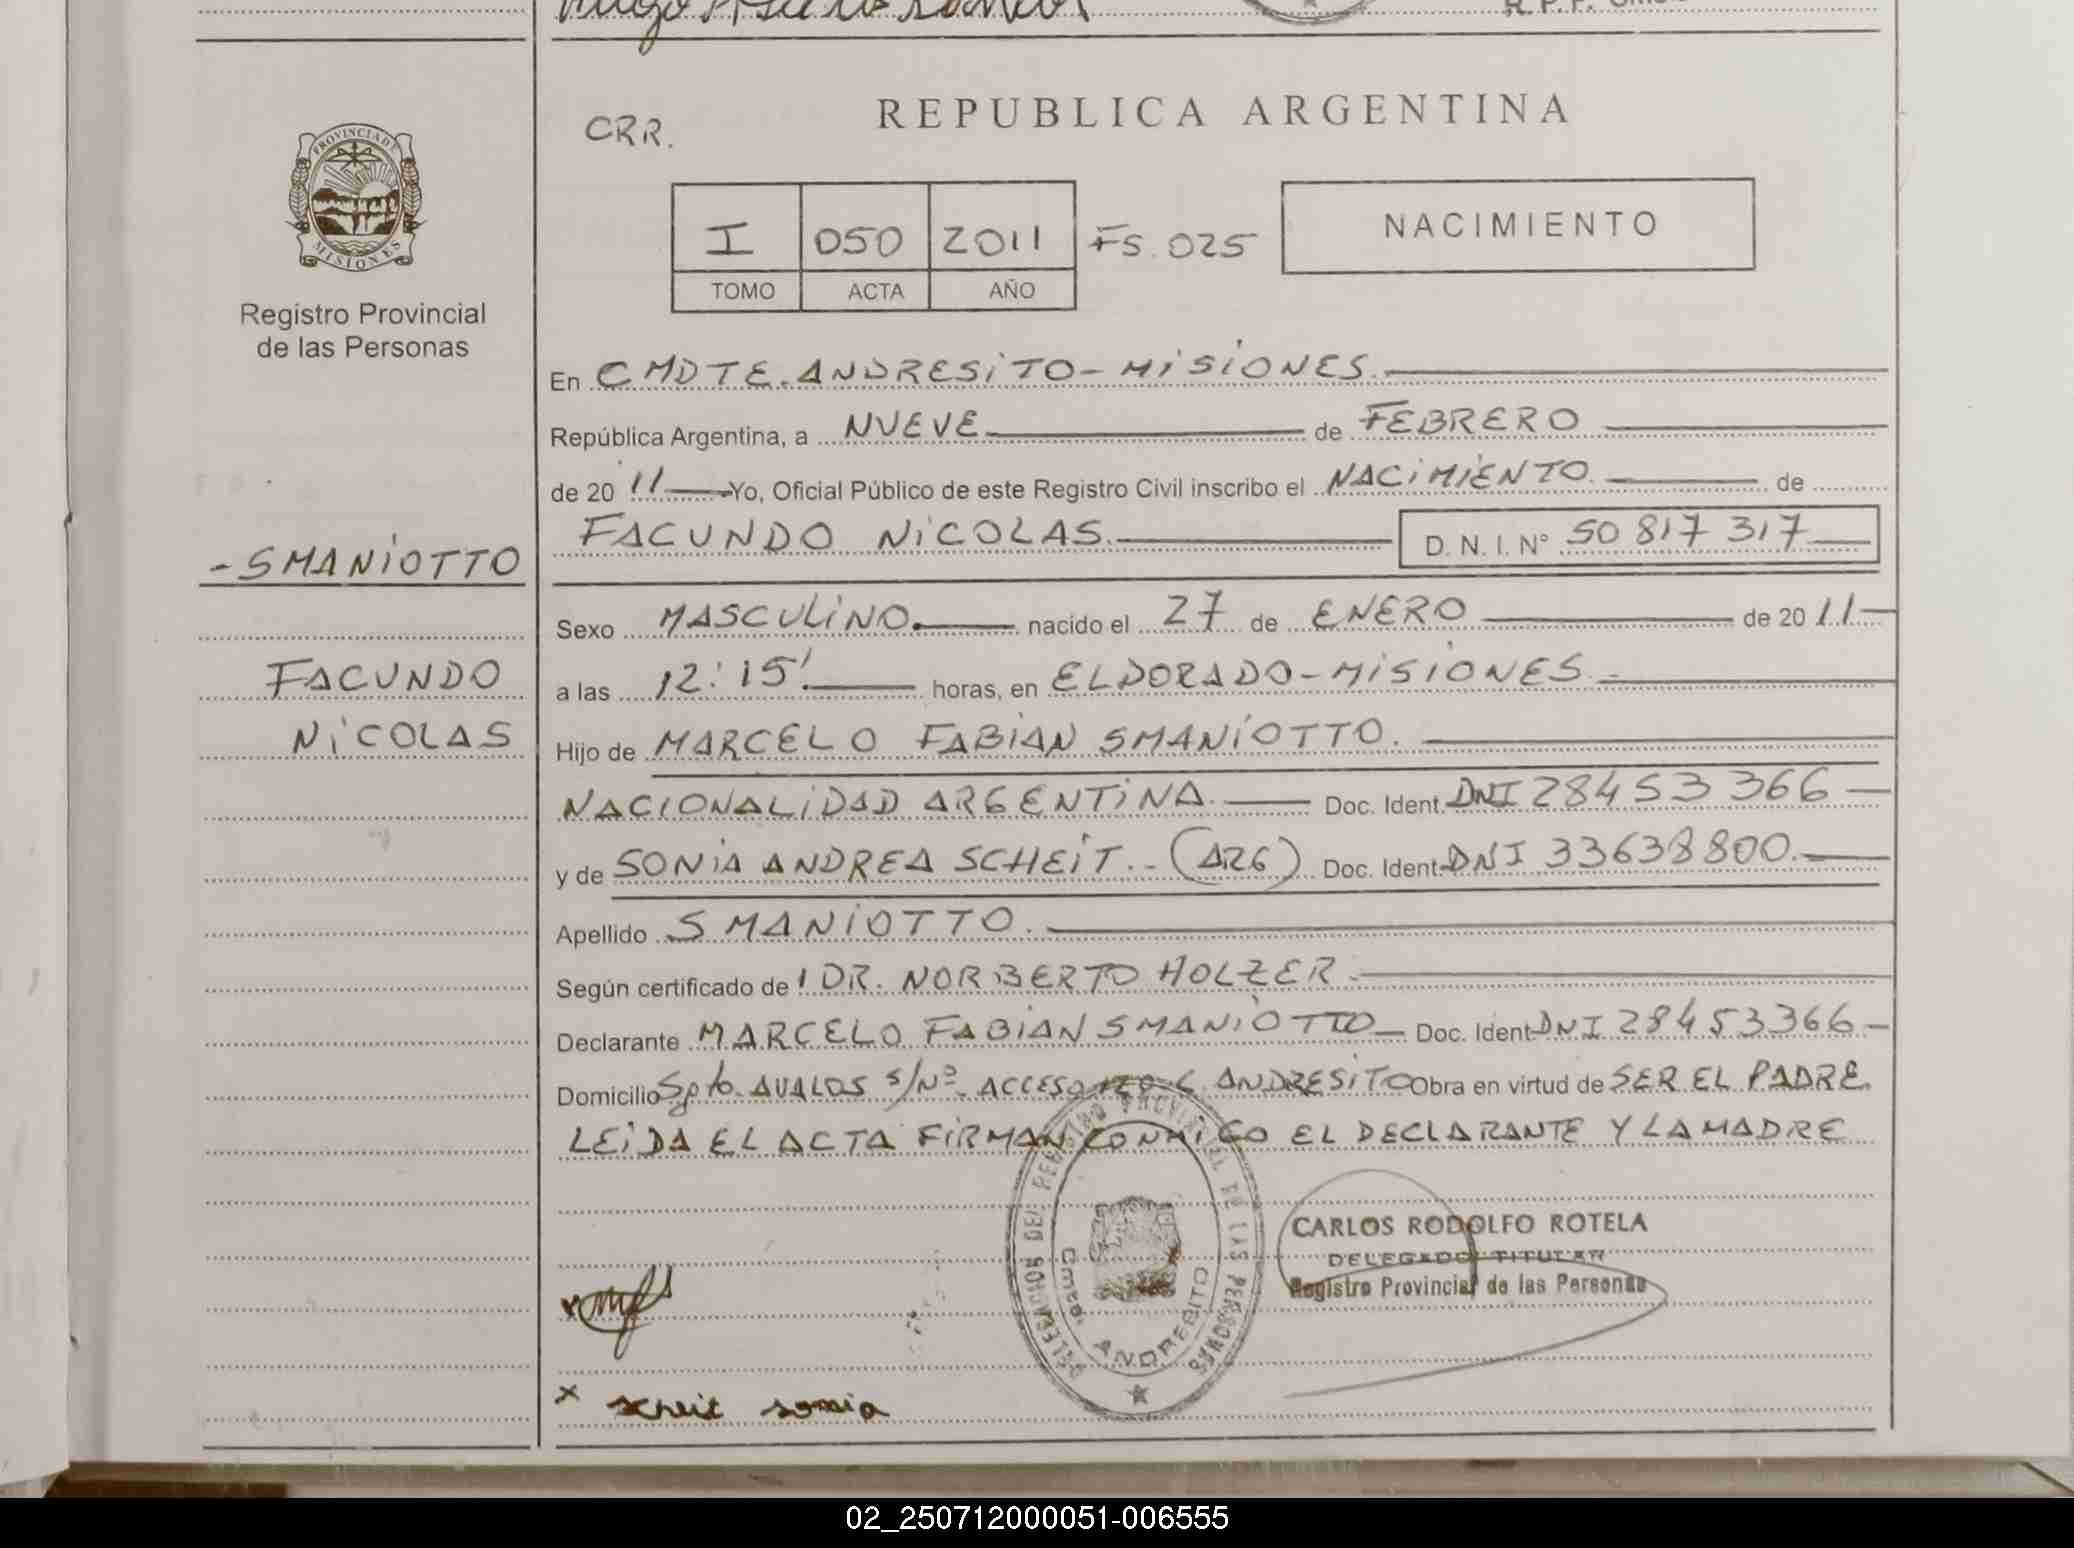 CRR.
REPUBLICA ARGENTINA
PROVINCIA DE MISIONES
I 050 2011 FS. 025
TOMO ACTA AÑO
NACIMIENTO
Registro Provincial
de las Personas
En CMDTE. ANDRESITO - MISIONES.
República Argentina, a NUEVE de FEBRERO
de 20 11 Yo, Oficial Público de este Registro Civil inscribo el NACIMIENTO. de
FACUNDO NICOLAS. D. N. I. N° 50 817 317
- SMANIOTTO
FACUNDO
NICOLAS
Sexo MASCULINO. nacido el 27 de ENERO de 20 11
a las 12:15' horas, en ELDORADO - MISIONES.
Hijo de MARCELO FABIAN SMANIOTTO.
NACIONALIDAD ARGENTINA. Doc. Ident. DNI 28453366
y de SONIA ANDREA SCHEIT. - (ARG) Doc. Ident. DNI 33638800.
Apellido SMANIOTTO.
Según certificado de DR. NORBERTO HOLZER.
Declarante MARCELO FABIAN SMANIOTTO Doc. Ident. DNI 28453366
Domicilio Spto. AVALOS S/Nº - ACCESO C. ANDRESITO Obra en virtud de SER EL PADRE
LEIDA EL ACTA FIRMAN CONMIGO EL DECLARANTE Y LA MADRE
DELEGACION DEL REGISTRO PROVINCIAL DE LAS PERSONAS
Cmte. ANDRESITO
CARLOS RODOLFO ROTELA
DELEGADO TITULAR
Registro Provincial de las Personas
x
x scheit sonia
02_250712000051-006555